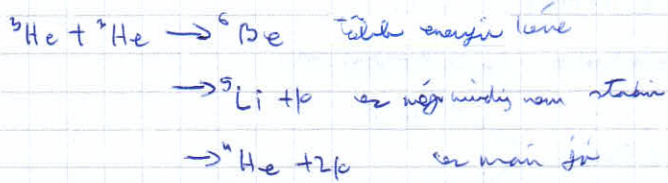 ³He + ³He → ⁶Be több energia kéne
→ ⁵Li + p ez még mindig nem stabil
→ ⁴He + 2p ez már jó